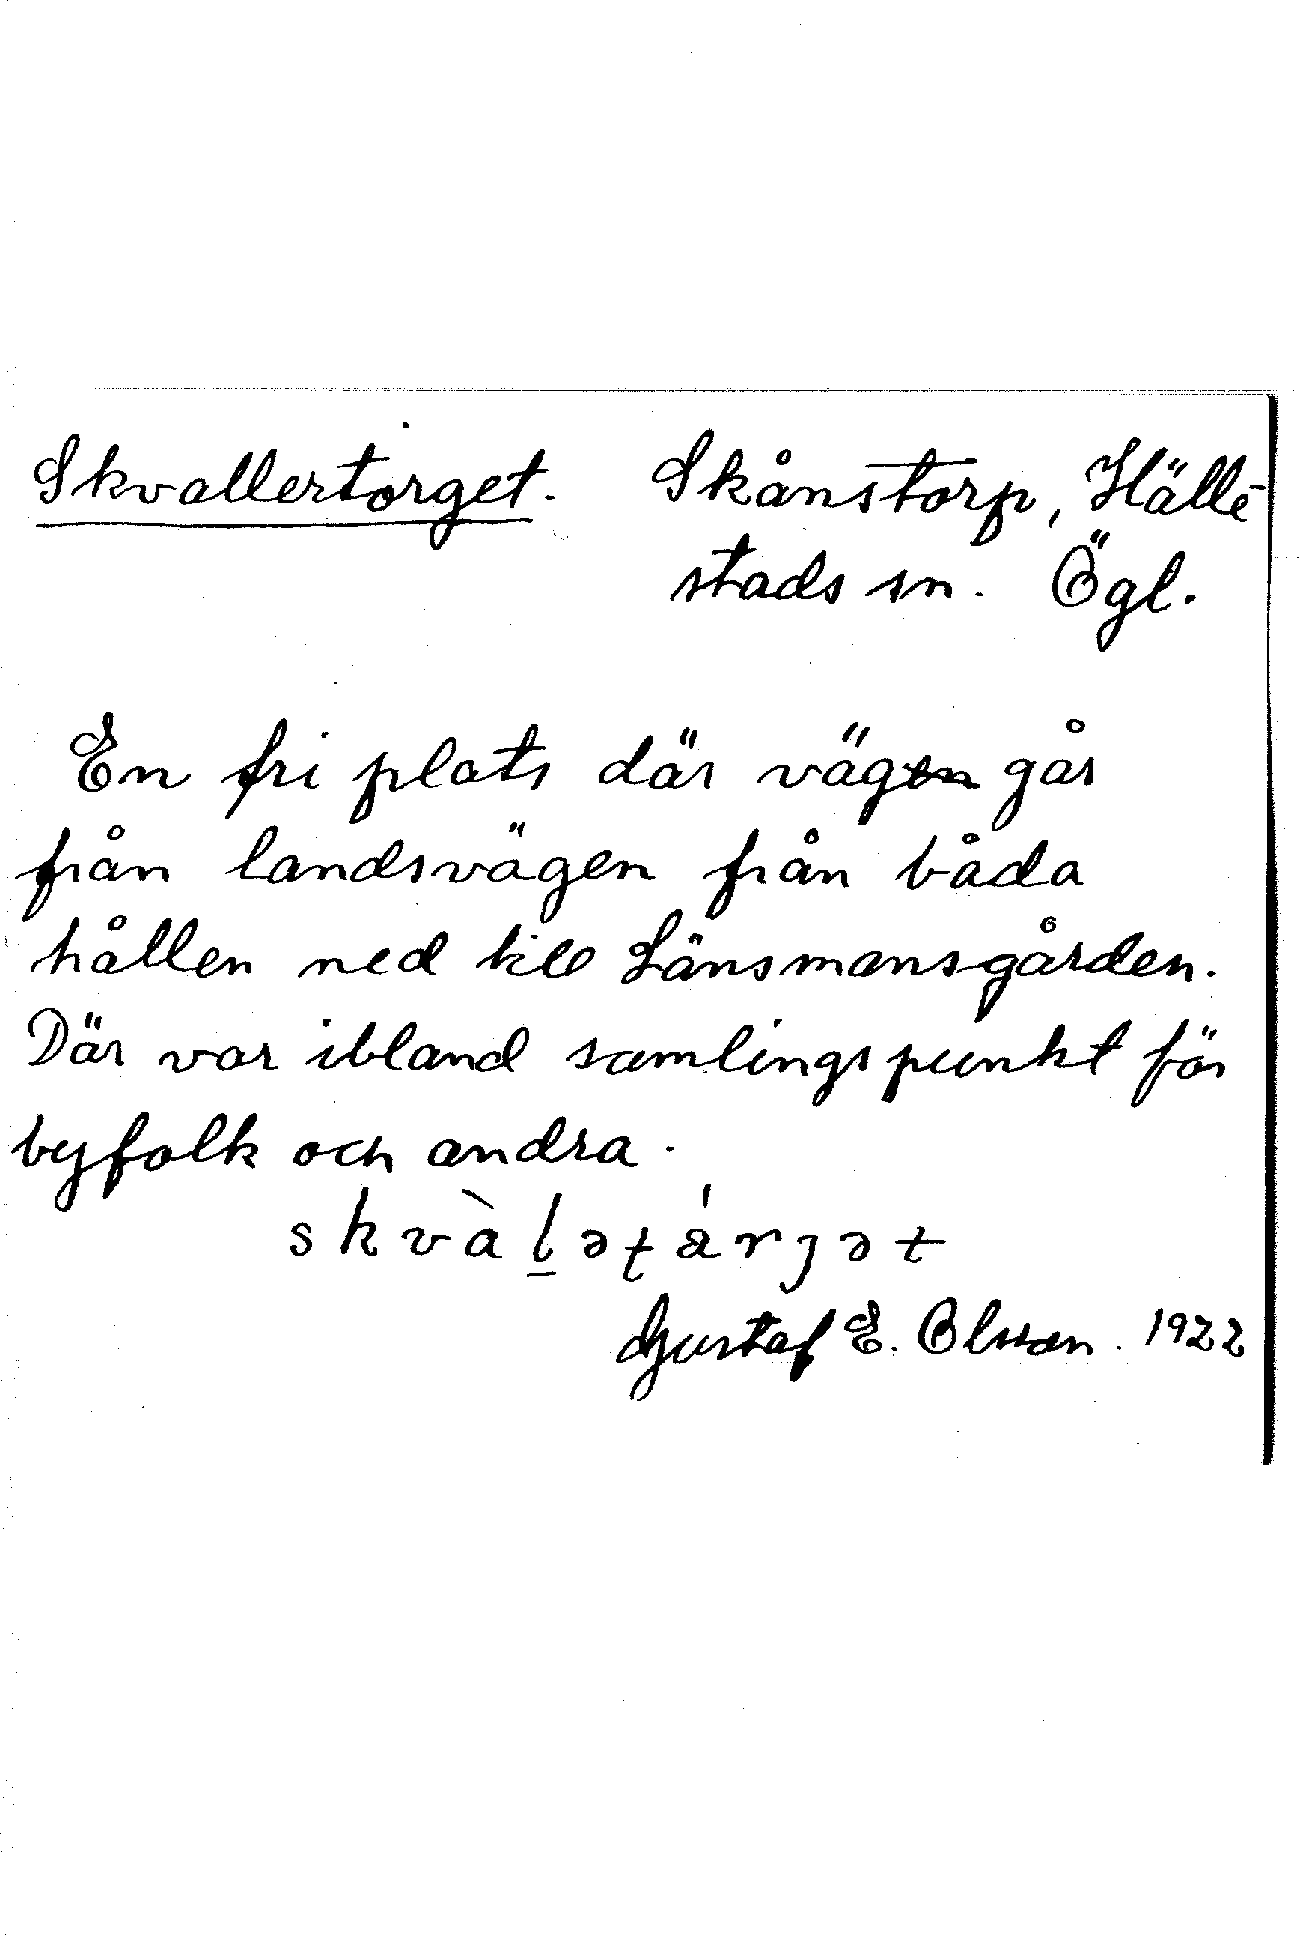 Skvallertorget. Skånstorp, Hälle-
stads sn. Ögl.
En fri plats där vägen går
från landsvägen från båda
hållen ned till Länsmansgården.
Där var ibland samlingspunkt för
byfolk och andra.
skvàḻəʈárȷət
Gustaf E. Olsson. 1922